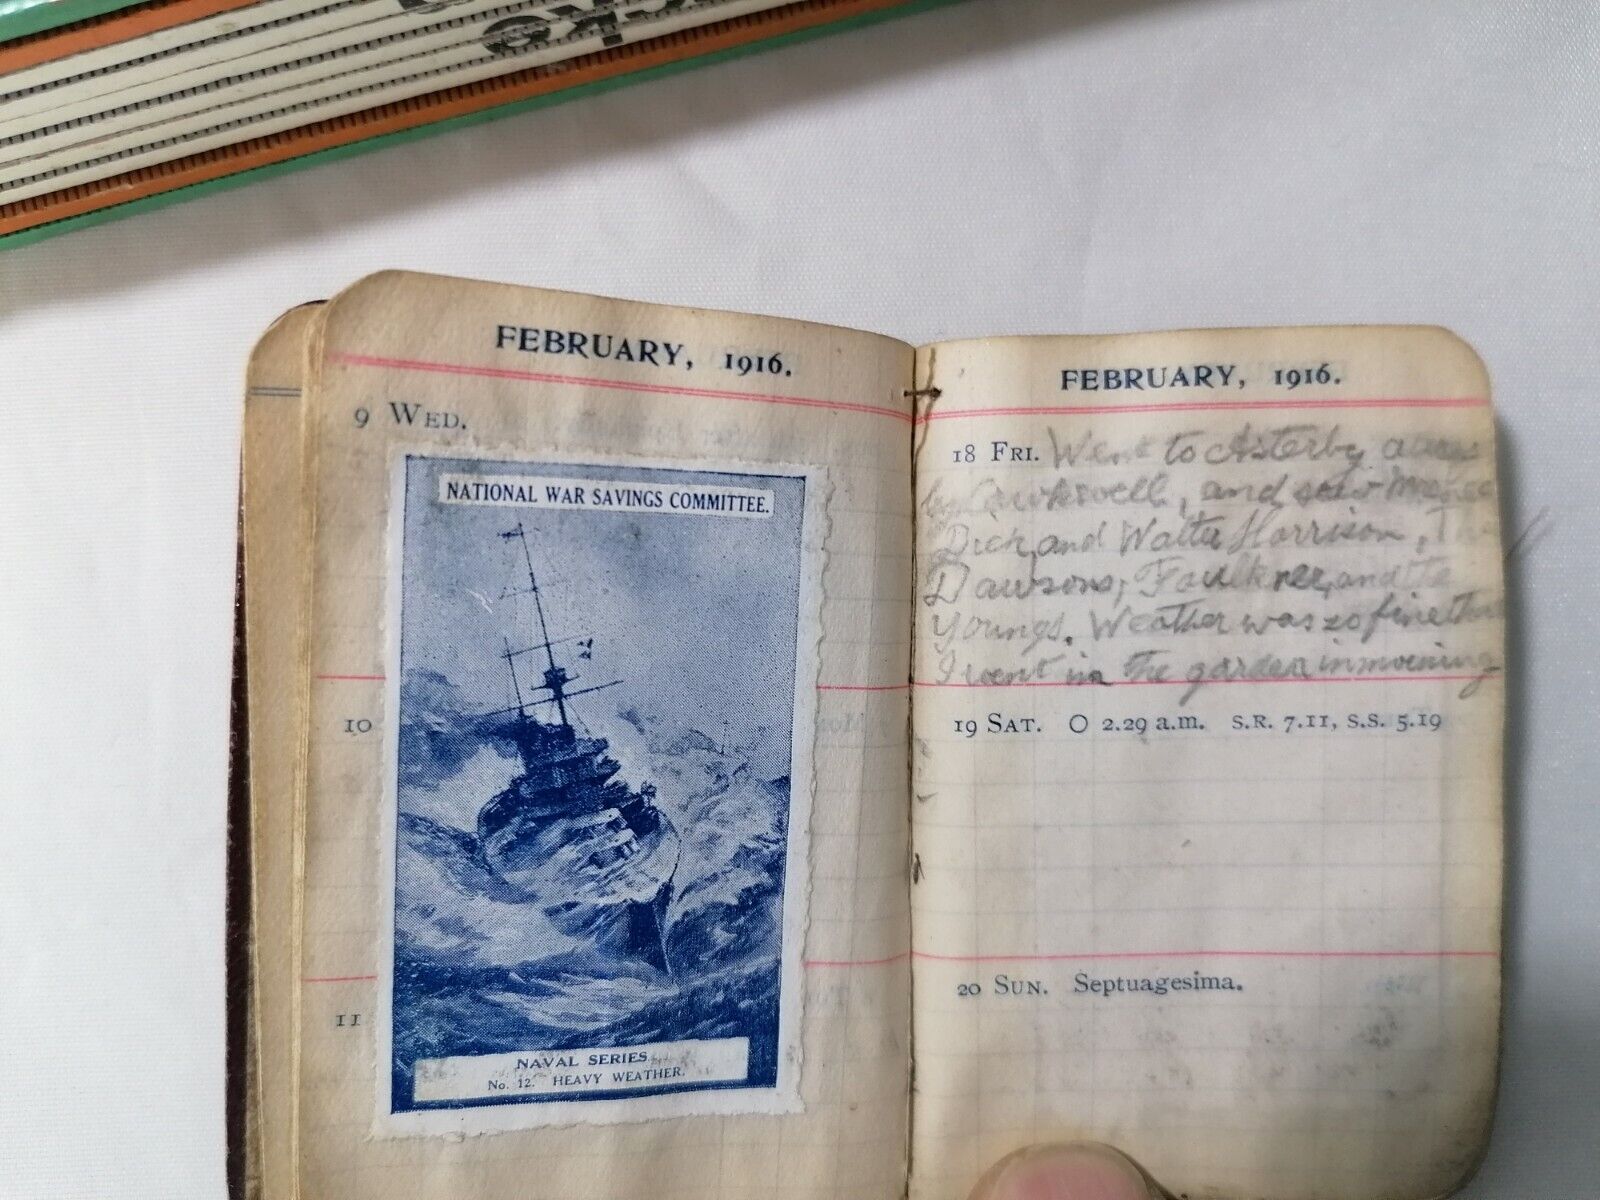 FEBRUARY, 1916.
9 WED.
NATIONAL WAR SAVINGS COMMITTEE.
10
11
NAVAL SERIES
No. 12. HEAVY WEATHER.
FEBRUARY, 1916.
18 FRI. Went to Asterby
by Cawkwell, and saw
Dick, and Walter Harrison,
Dawsons, Faulkner, and the
Youngs. Weather was so fine that
I went in the garden in morning
19 SAT. O 2.29 a.m. S.R. 7.11, S.S. 5.19
20 SUN. Septuagesima.